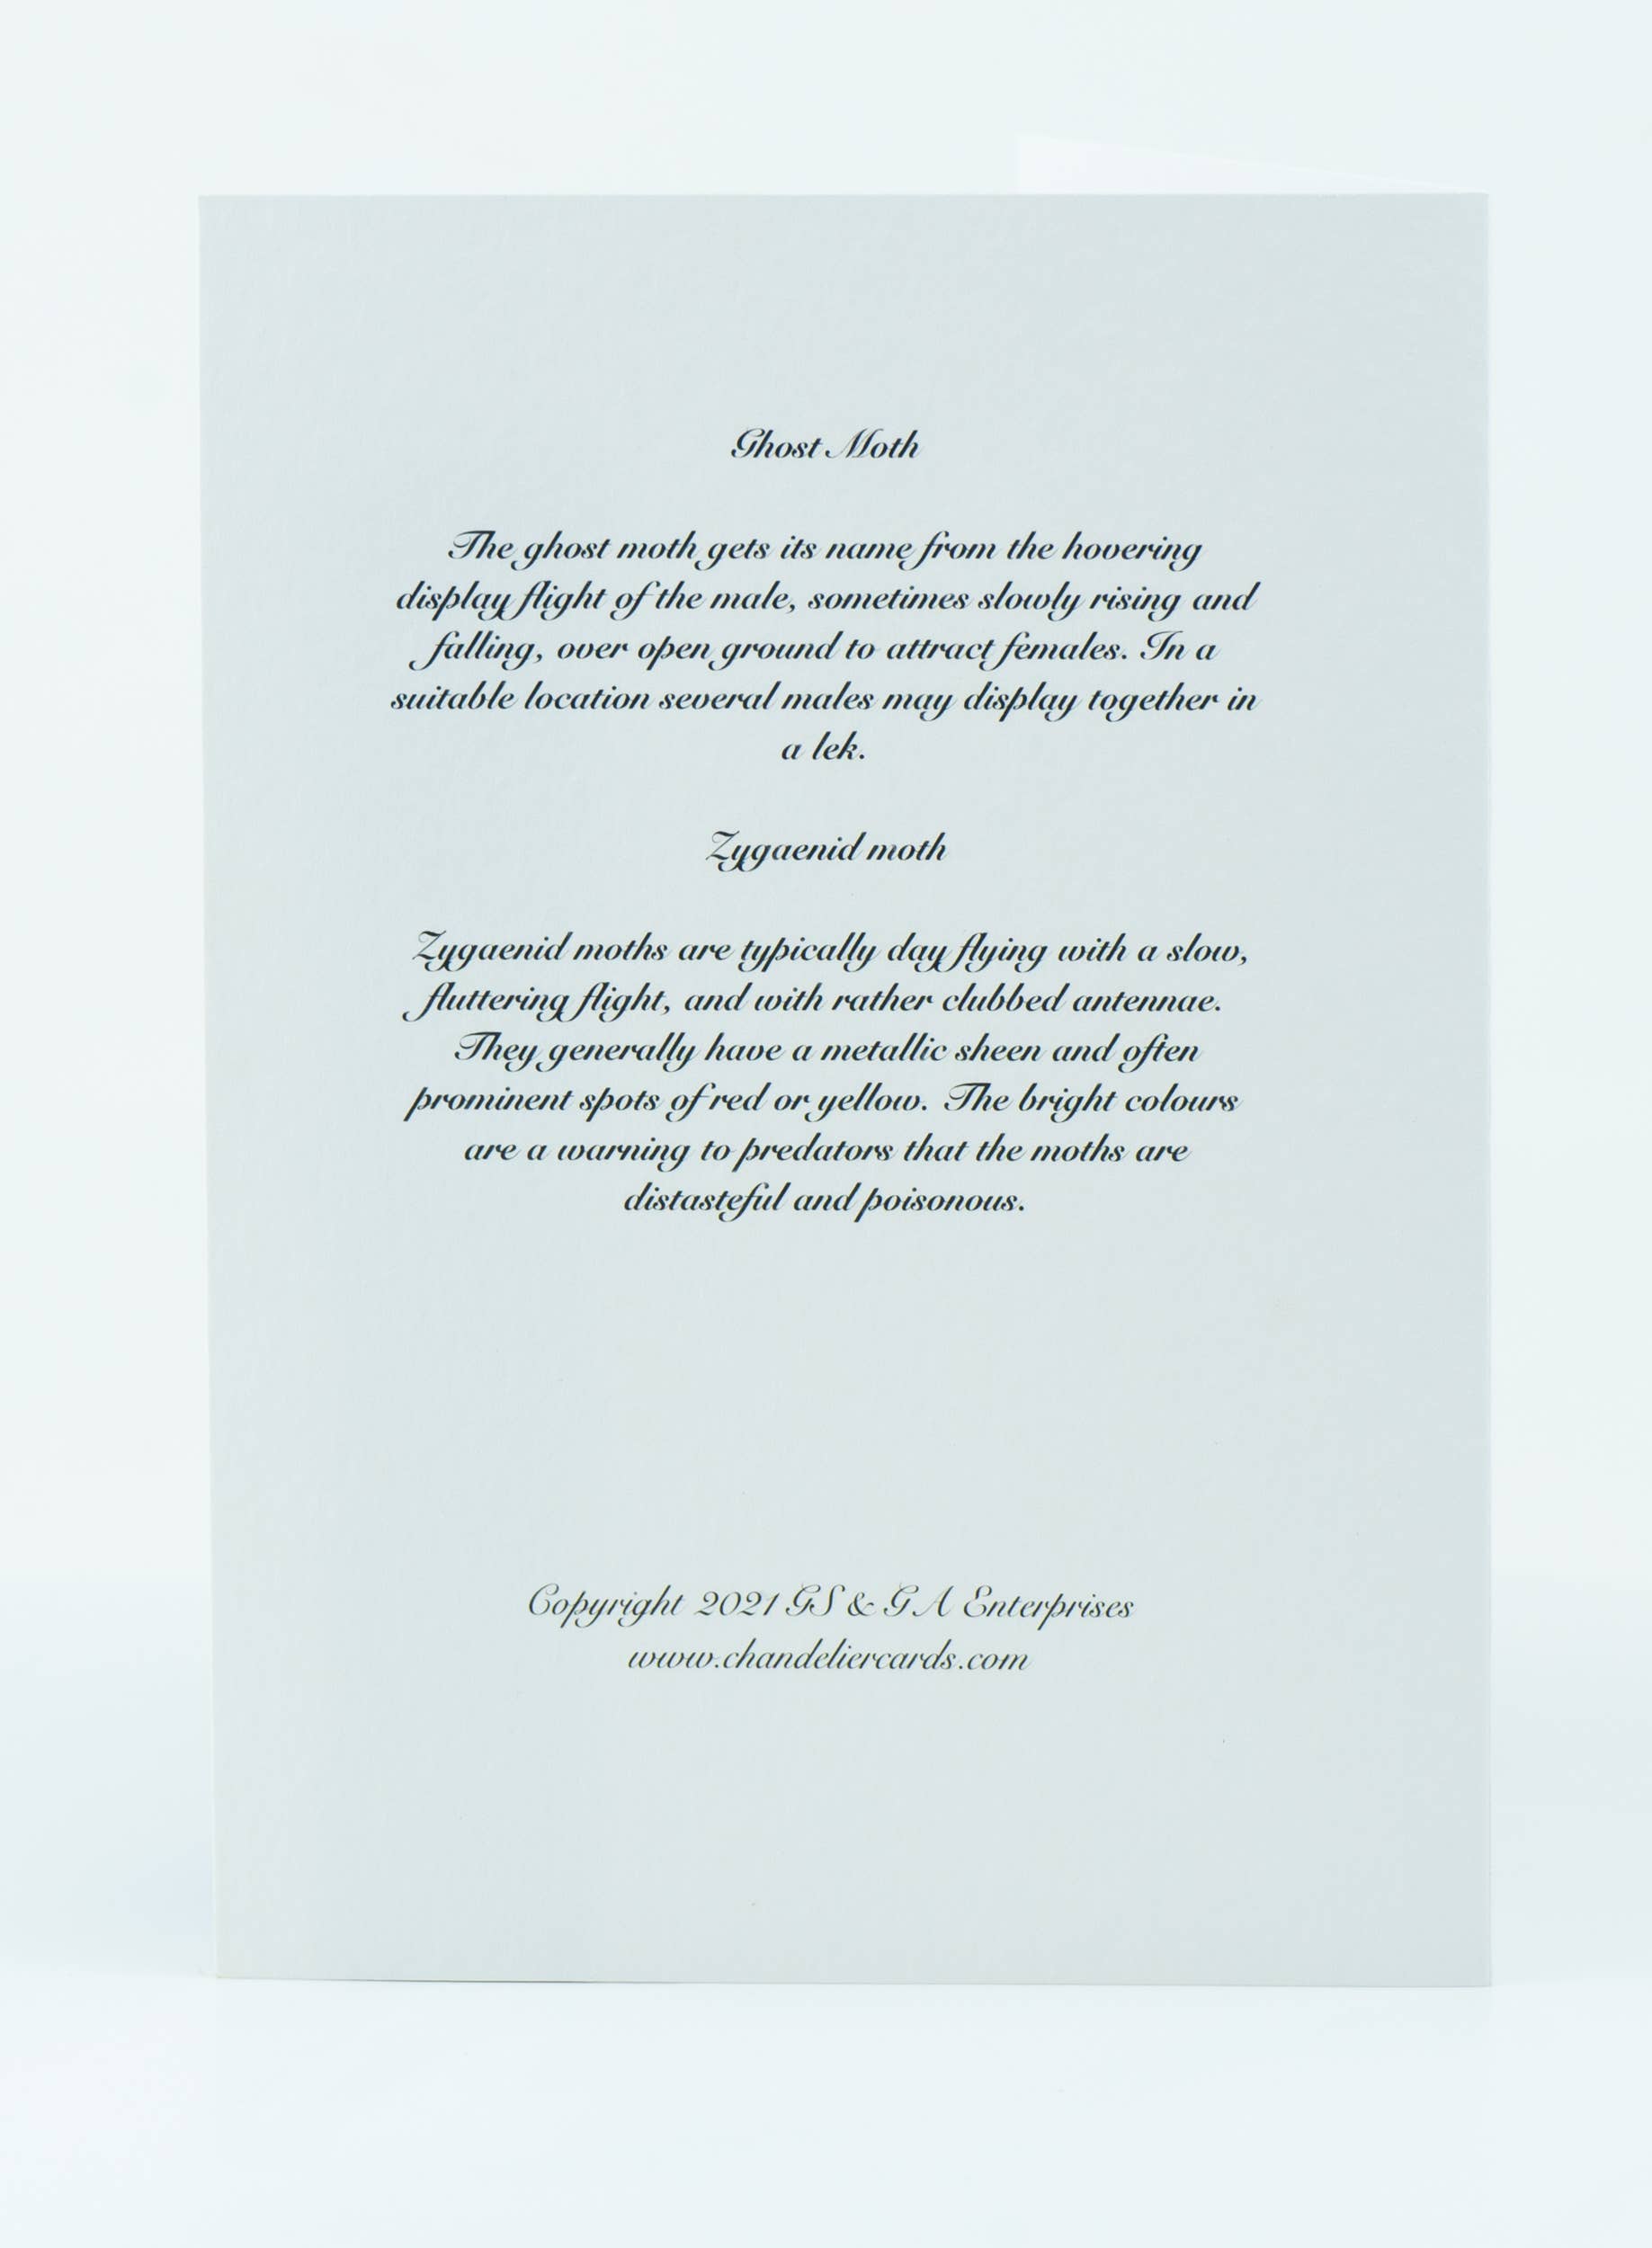 Ghost Moth
The ghost moth gets its name from the hovering
display flight of the male, sometimes slowly rising and
falling, over open ground to attract females. In a
suitable location several males may display together in
a lek.
Zygaenid moth
Zygaenid moths are typically day flying with a slow,
fluttering flight, and with rather clubbed antennae.
They generally have a metallic sheen and often
prominent spots of red or yellow. The bright colours
are a warning to predators that the moths are
distasteful and poisonous.
Copyright 2021 GS & G A Enterprises
www.chandeliercards.com